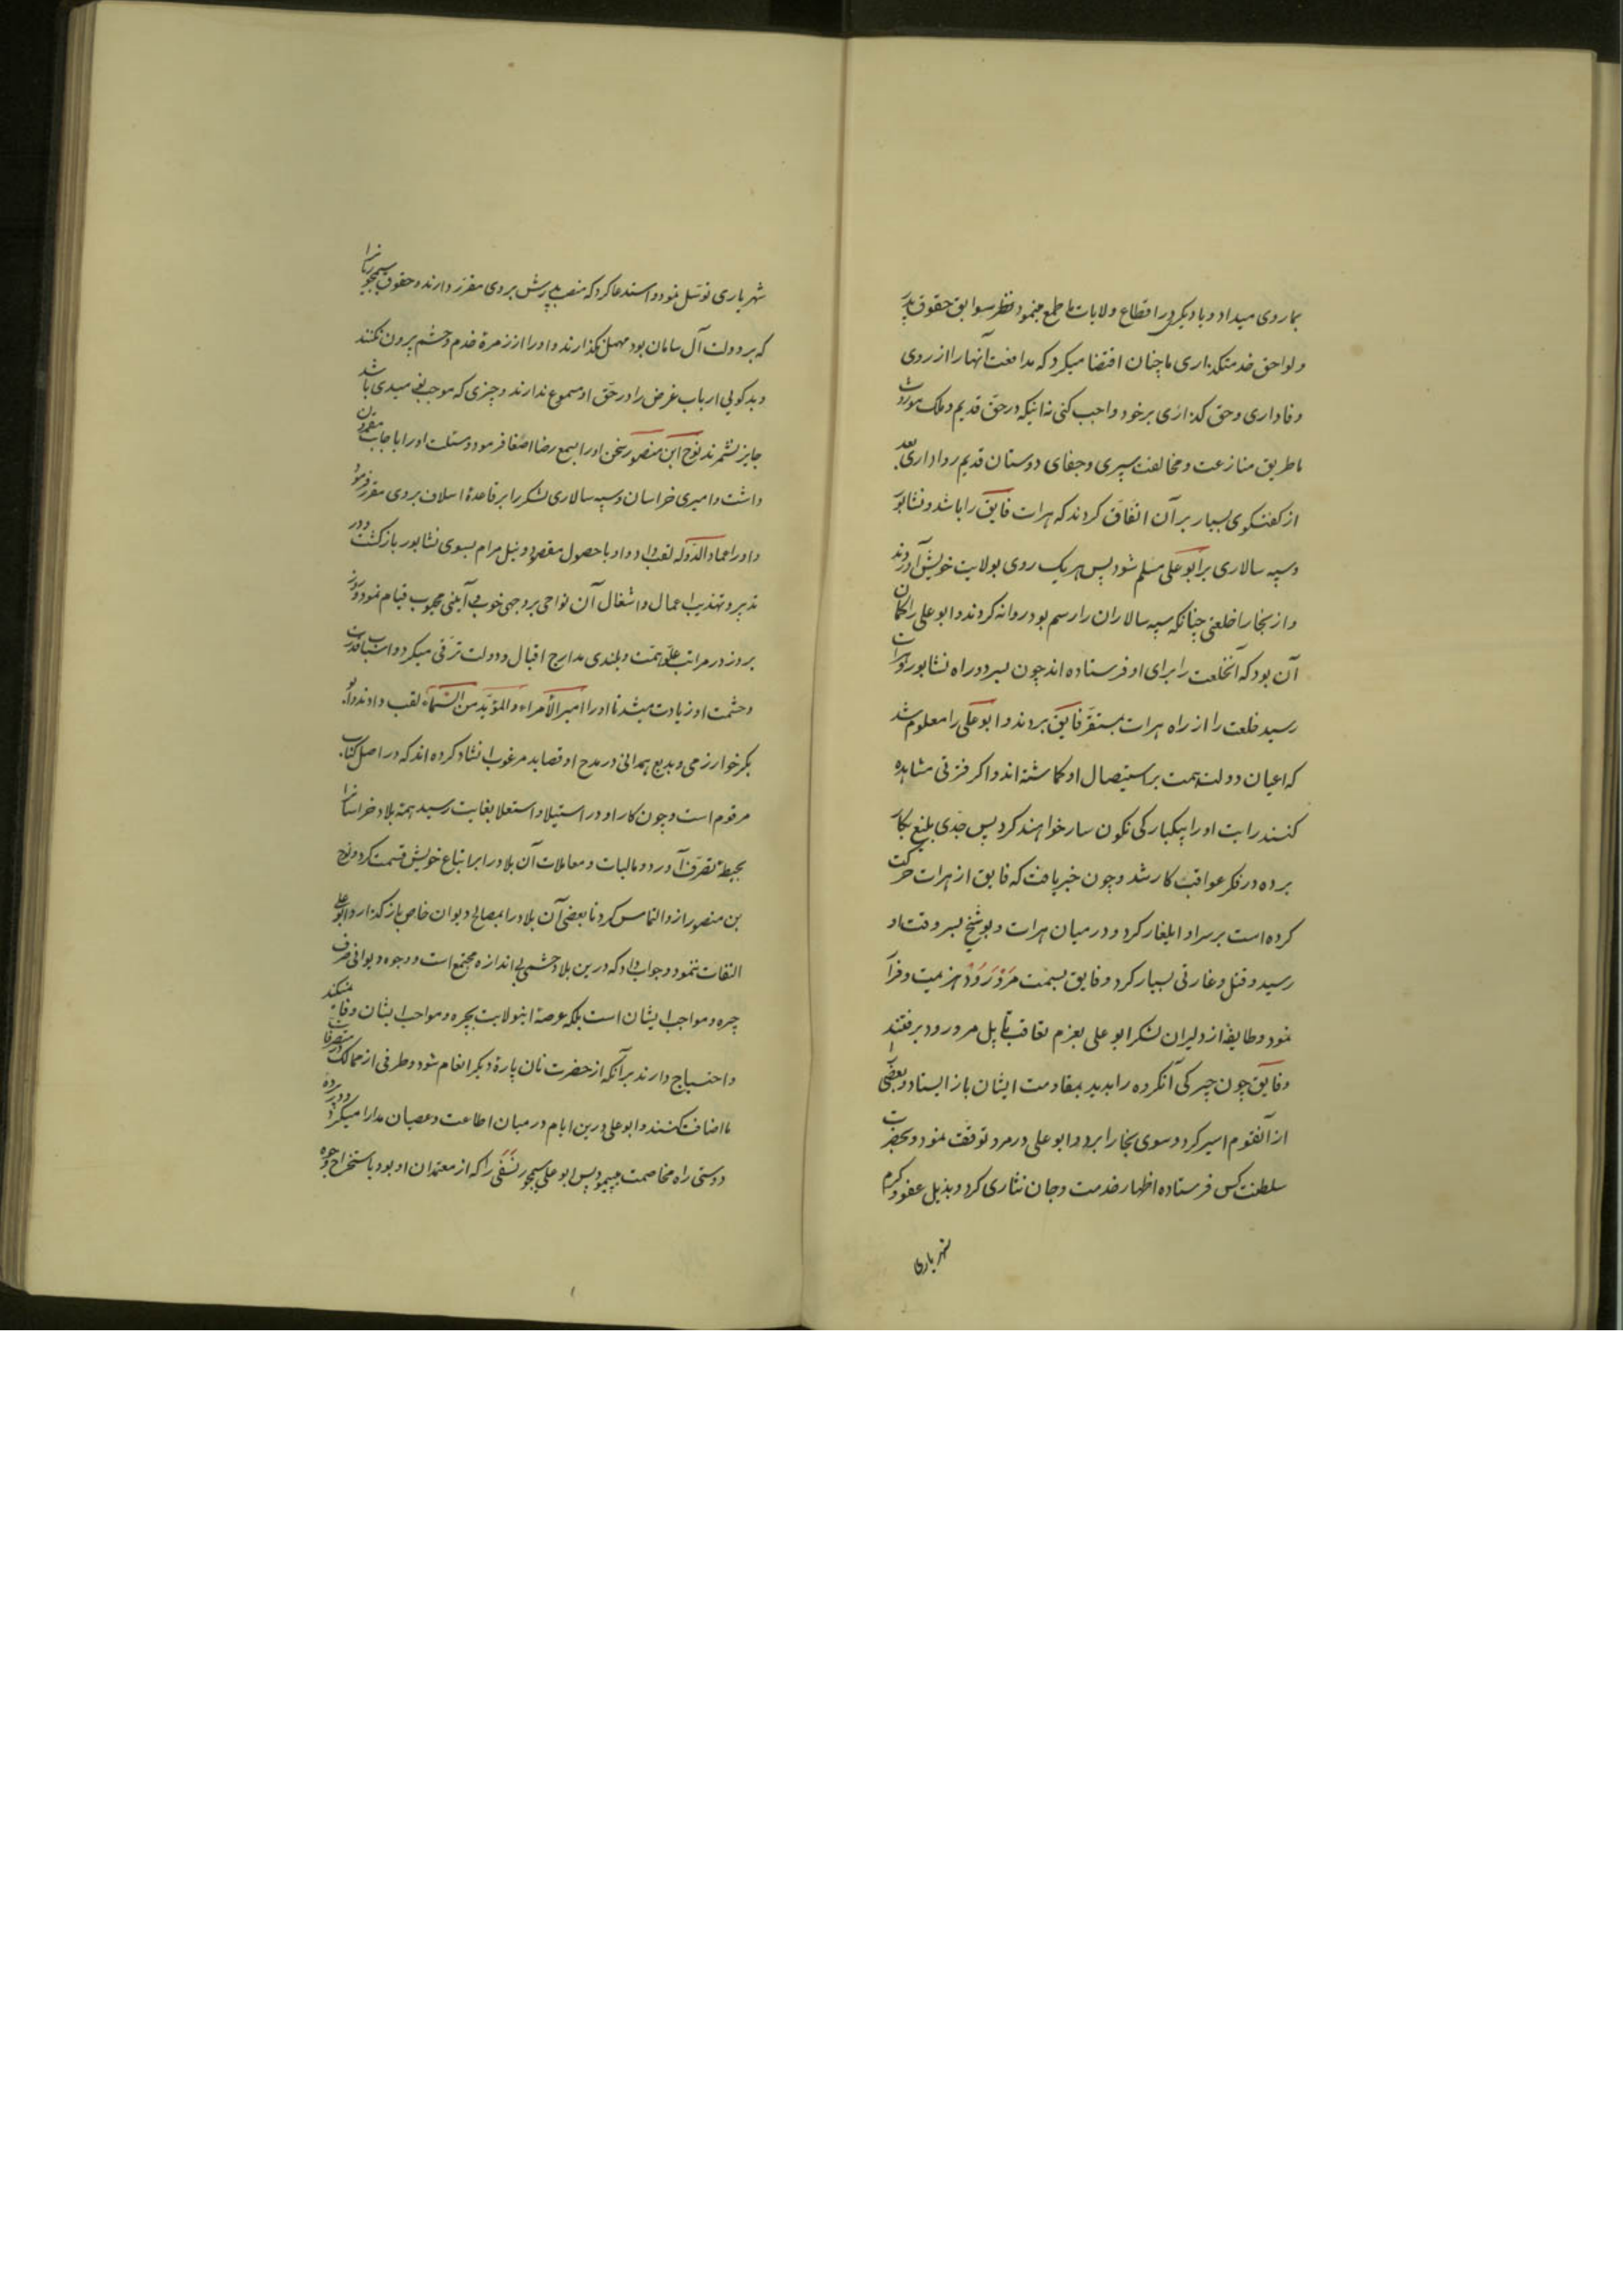 بما روی میداد و با دیگری در اقطاع ولایات ما طمع مینمود نظر سوابق حقوق پدر
و لواحق خدمتکذاری ما چنان اقتضا میکرد که مدافعت آنها را از روی
وفاداری و حق کذاری برخود واجب کنی نه اینکه در حق قدیم و ملک موروث
ما طریق منازعت و مخالفت سپری و جفای دوستان قدیم روا داری بعد
از کفتگوی بسیار بر آن اتفاق کردند که هرات فایق را باشد و نشابور
و سپه سالاری بر ابوعلی مسلم شود پس هریک روی بولایت خویش آوردند
و از بخارا خلعتی چنانکه سپه سالاران را رسم بود روانه کردند و ابوعلی را کمان
آن بود که آنخلعت را برای او فرستاده اند چون بسر دو راه نشابور و هرات
رسید خلعت را از راه هرات بمستقر فایق بردند و ابوعلی را معلوم شد
که اعیان دولت همت بر استیصال او کماشته اند و اکر فرتی مشاهده
کنند رایت او را بیکبارکی نکون سار خواهند کرد پس جدی بلیغ بکار
برده در فکر عواقب کار شد و چون خبر یافت که فایق از هرات حرکت
کرده است بر سر او ایلغار کرد و در میان هرات و بوشنج بسر وقت او
رسید و قتل و غارتی بسیار کرد و فایق بسمت مرورود هزیمت و فرار
نمود و طایفه از دلیران لشکر ابوعلی بعزم تعاقب تا پل مرورود برفتند
و فایق چون چیرکی آنکروه را بدید بمقاومت ایشان باز ایستاد و بعضی
از آنقوم اسیر کرد و سوی بخارا برد و ابوعلی در مرو توقف نمود و بحضرت
سلطنت کس فرستاده اظهار خدمت و جان نثاری کرد و بذیل عفو و کرم
شهریاری
شهریاری توسل نمود و استدعا کرد که منصب پدرش بر وی مقرر دارند و حقوق سیمجوریانرا
که بر دولت آل سامان بود مهمل نکذارند و او را از زمرهٔ خدم و حشم برون نکنند
و بدکویی ارباب غرض را در حق او مسموع ندارند و چیزی که موجب نومیدی باشد
جایز نشمرند نوح ابن منصور سخن او را بسمع رضا اصغا فرمود و مسئلت او را با جابت مقرون
داشت و امیری خراسان و سپه سالاری لشکر را بر قاعدهٔ اسلاف بر وی مقرر فرمود
و او را عماد الدوله لقب داد و او با حصول مقصود و نیل مرام بسوی نشابور بازکشت و در
تدبیر و تهذیب اعمال و اشغال آن نواحی بر وجهی خوب و آیینی محبوب قیام نمود و روز
بروز در مراتب علو همت و بلندی مدارج اقبال و دولت ترقی میکرد و اسباب قدرت
و حشمت او زیادت میشد تا او را امیر الأمراء و المؤید من السماء لقب دادند و ابو
بکر خوارزمی و بدیع همدانی در مدح او قصاید مرغوب انشاد کرده اند که در اصل کتاب
مرقوم است و چون کار او در استیلا و استعلا بغایت رسید همهٔ بلاد خراسانرا
بحیطهٔ تصرف آورد و مالیات و معاملات آن بلاد را بر اتباع خویش قسمت کرد و نوح
بن منصور ازو التماس کرد تا بعضی آن بلاد را بمصالح دیوان خاص بازکذارد و ابوعلی
التفات ننمود و جواب داد که درین بلاد حشمی بی اندازه مجتمع است و وجوه دیوانی صرف
چره و مواجب ایشان است بلکه عرصهٔ اینولایت بچره و مواجب ایشان وفا نمیکند
و احتیاج دارند بر آنکه از حضرت نان پارهٔ دیکر انعام شود و طرفی از ممالک در متصرفات
ما اضافت کنند و ابوعلی درین ایام در میان اطاعت و عصیان مدارا میکرد و در پردهٔ
دوستی راه مخاصمت میپیمود پس ابوعلی سیمجور نسفی را که از معتمدان او بود باستخراج وجوه